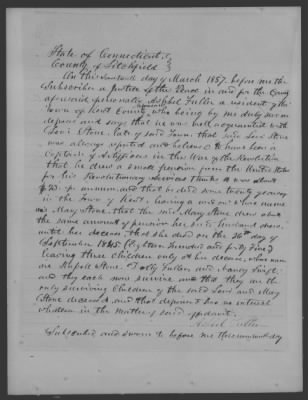 State of Connecticut }
County of Litchfield }
On the day of March 1857. before me the
Subscriber a Justice of the Peace in and for the County
aforesaid personally Alphel Fuller a resident of the
Town of Kent County who being by me duly sworn
deposes and says that he was well acquainted with
Levi Stone, late of said Town, that said Levi Stone
was always reputed and believed to have been a
Captain of Artificers in the War of the Revolution
that he drew a small pension from the United States
for his Revolutionary services
pr annum, and that he died some twenty years
in the Town of Kent, leaving a widow whose name
was Mary Stone, that the said Mary Stone drew about
the same amount of pension her said husband drew,
until her decease, that she died on the day of
September 1845 (Eighteen hundred and forty five)
leaving three children only at her decease, whose names
are Stone, Polly Fuller, and Nancy Segel,
and they each now survive and that they are the
only surviving Children of the said Levi and Mary
Stone deceased, and that deponent has no interest
whatever in the matter of said affidavit.
Fuller
Subscribed and sworn to before me the same day